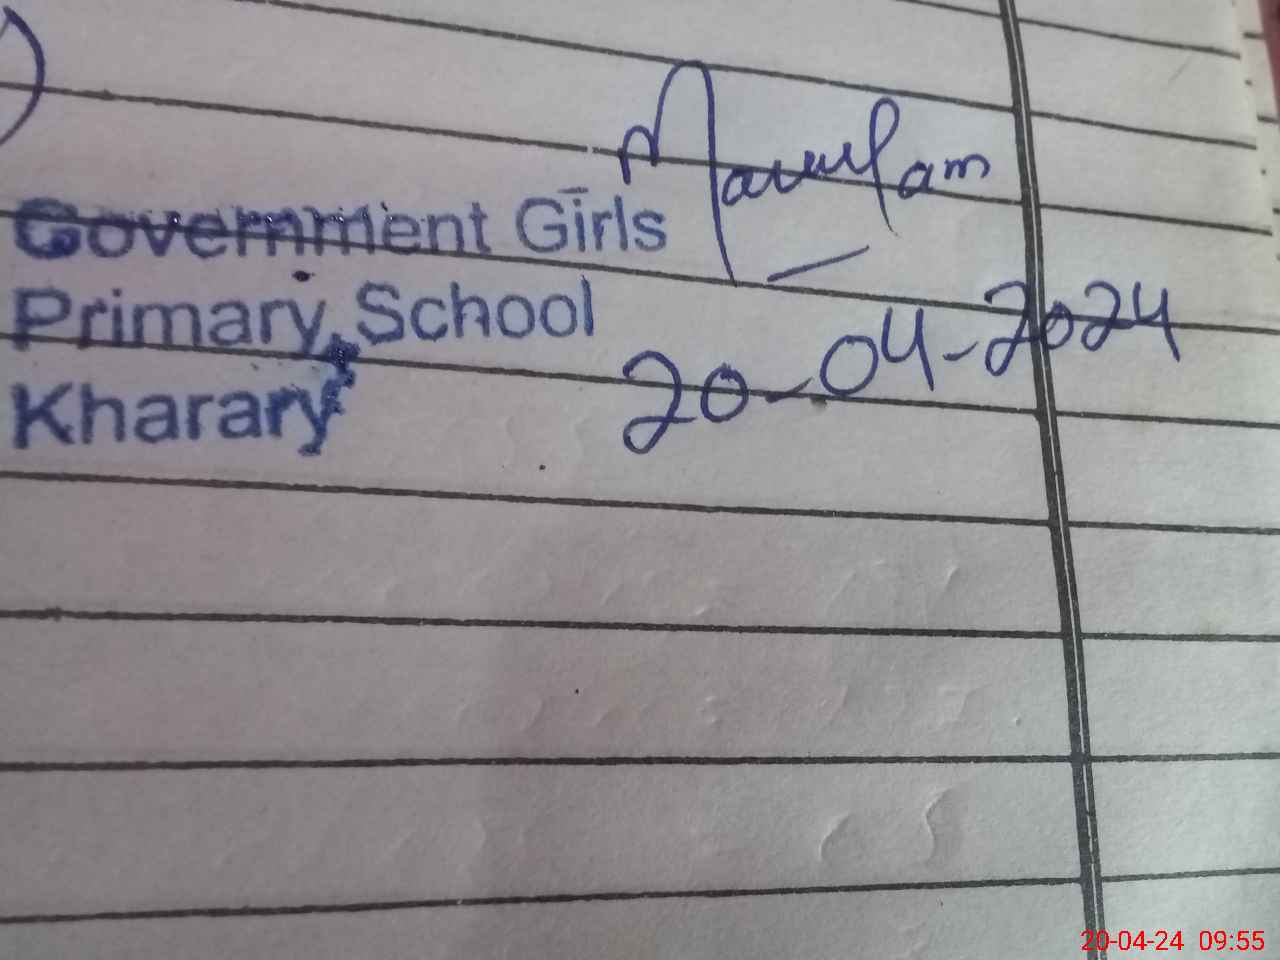 Government Girls
Primary School
Kharary
20-04-2024
20-04-24 09:55